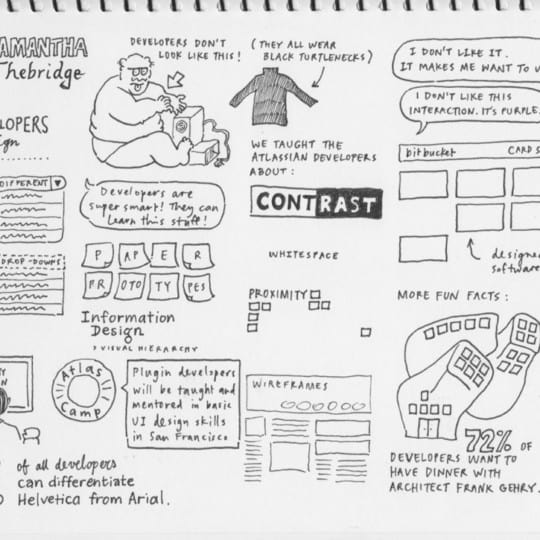 AMANTHA
Thebridge
DEVELOPERS DON'T
LOOK LIKE THIS!
(THEY ALL WEAR
BLACK TURTLENECKS)
I DON'T LIKE IT.
IT MAKES ME WANT TO
I DON'T LIKE THIS
INTERACTION. IT'S PURPLE.
LOPERS
ign
WE TAUGHT THE
ATLASSIAN DEVELOPERS
ABOUT:
bitbucket CARD S
DIFFERENT
Developers are
super smart! They can
learn this stuff!
CONTRAST
designe
software
P AP E R
PR OTO TY PES
WHITESPACE
DROP-DOWNS
PROXIMITY
MORE FUN FACTS:
Information
Design
> VISUAL HIERARCHY
Atlas
Camp
Plugin developers
will be taught and
mentored in basic
UI design skills
in San Francisco
WIREFRAMES
72% OF
DEVELOPERS WANT TO
HAVE DINNER WITH
ARCHITECT FRANK GEHRY.
of all developers
can differentiate
Helvetica from Arial.